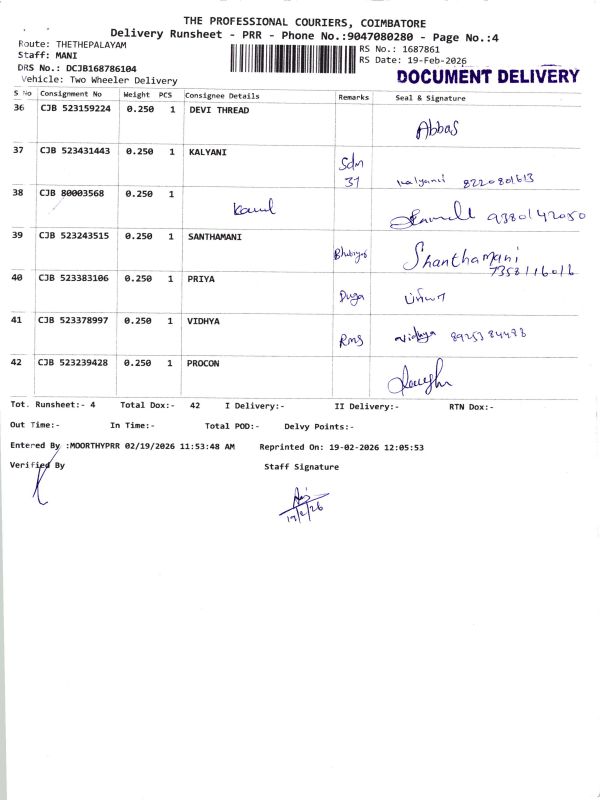 THE PROFESSIONAL COURIERS, COIMBATORE
Delivery Runsheet - PRR - Phone No.:9047080280 - Page No.:4
Route: THETHEPALAYAM
RS No.: 1687861
Staff: MANI
RS Date: 19-Feb-2026
DRS No.: DCJB168786104
DOCUMENT DELIVERY
Vehicle: Two Wheeler Delivery
S No Consignment No Weight PCS Consignee Details Remarks Seal & Signature
36 CJB 523159224 0.250 1 DEVI THREAD Abbas
37 CJB 523431443 0.250 1 KALYANI Sdm 37 Kalyani 8220801613
38 CJB 80003568 0.250 1 9380142050
39 CJB 523243515 0.250 1 SANTHAMANI Shanthamani 7358116016
40 CJB 523383106 0.250 1 PRIYA பிரியா
41 CJB 523378997 0.250 1 VIDHYA RMS Vidhya
42 CJB 523239428 0.250 1 PROCON
Tot. Runsheet:- 4 Total Dox:- 42 I Delivery:- II Delivery:- RTN Dox:-
Out Time:- In Time:- Total POD:- Delvy Points:-
Entered By :MOORTHYPRR 02/19/2026 11:53:48 AM Reprinted On: 19-02-2026 12:05:53
Verified By Staff Signature
19/2/26